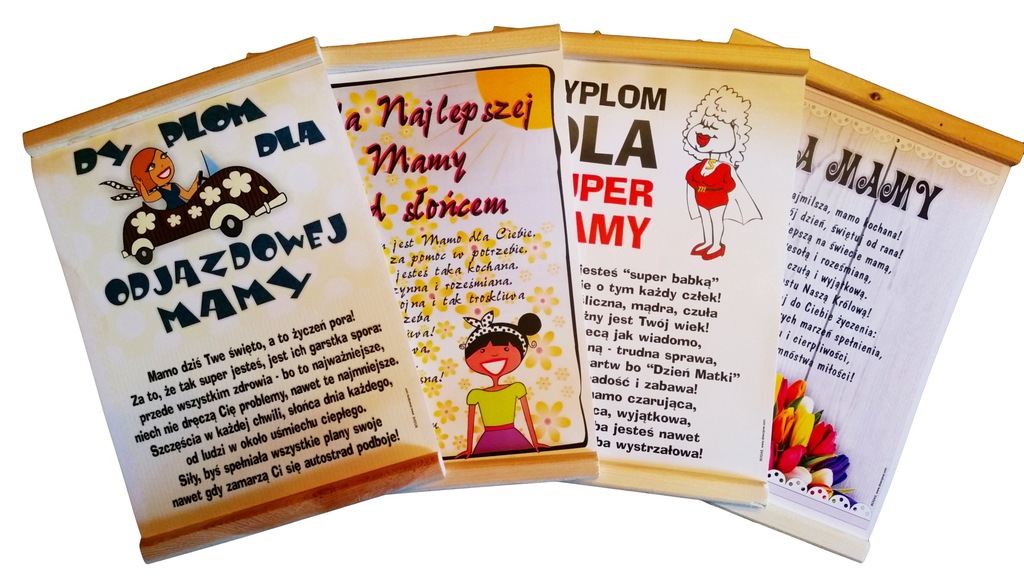 DYPLOM DLA
ODJAZDOWEJ
MAMY
Mamo dziś Twe święto, a to życzeń pora!
Za to, że tak super jesteś, jest ich garstka spora:
przede wszystkim zdrowia - bo to najważniejsze,
niech nie dręczą Cię problemy, nawet te najmniejsze.
Szczęścia w każdej chwili, słońca dnia każdego,
od ludzi w około uśmiechu ciepłego.
Siły, byś spełniała wszystkie plany swoje
nawet gdy zamarzą Ci się autostrad podboje!
a Najlepszej
Mamy
d słońcem
jest Mamo dla Ciebie,
za pomoc w potrzebie,
jesteś taka kochana,
ynna i roześmiana,
ojna i tak troskliwa
zeba
wa!
sna!
YPLOM
DLA
UPER
AMY
jesteś "super babką"
e o tym każdy człek!
liczna, mądra, czuła
żny jest Twój wiek!
ecą jak wiadomo,
ną - trudna sprawa,
artw bo "Dzień Matki"
adość i zabawa!
amo czarująca,
ca, wyjątkowa,
ba jesteś nawet
ba wystrzałowa!
A MAMY
ajmilsza, mamo kochana!
ój dzień, świętuj od rana!
lepszą na świecie mamą,
esołą i roześmianą,
czułą i wyjątkową.
stu Naszą Królową!
j do Ciebie życzenia:
ych marzeń spełnienia,
i cierpliwości,
mnóstwa miłości!